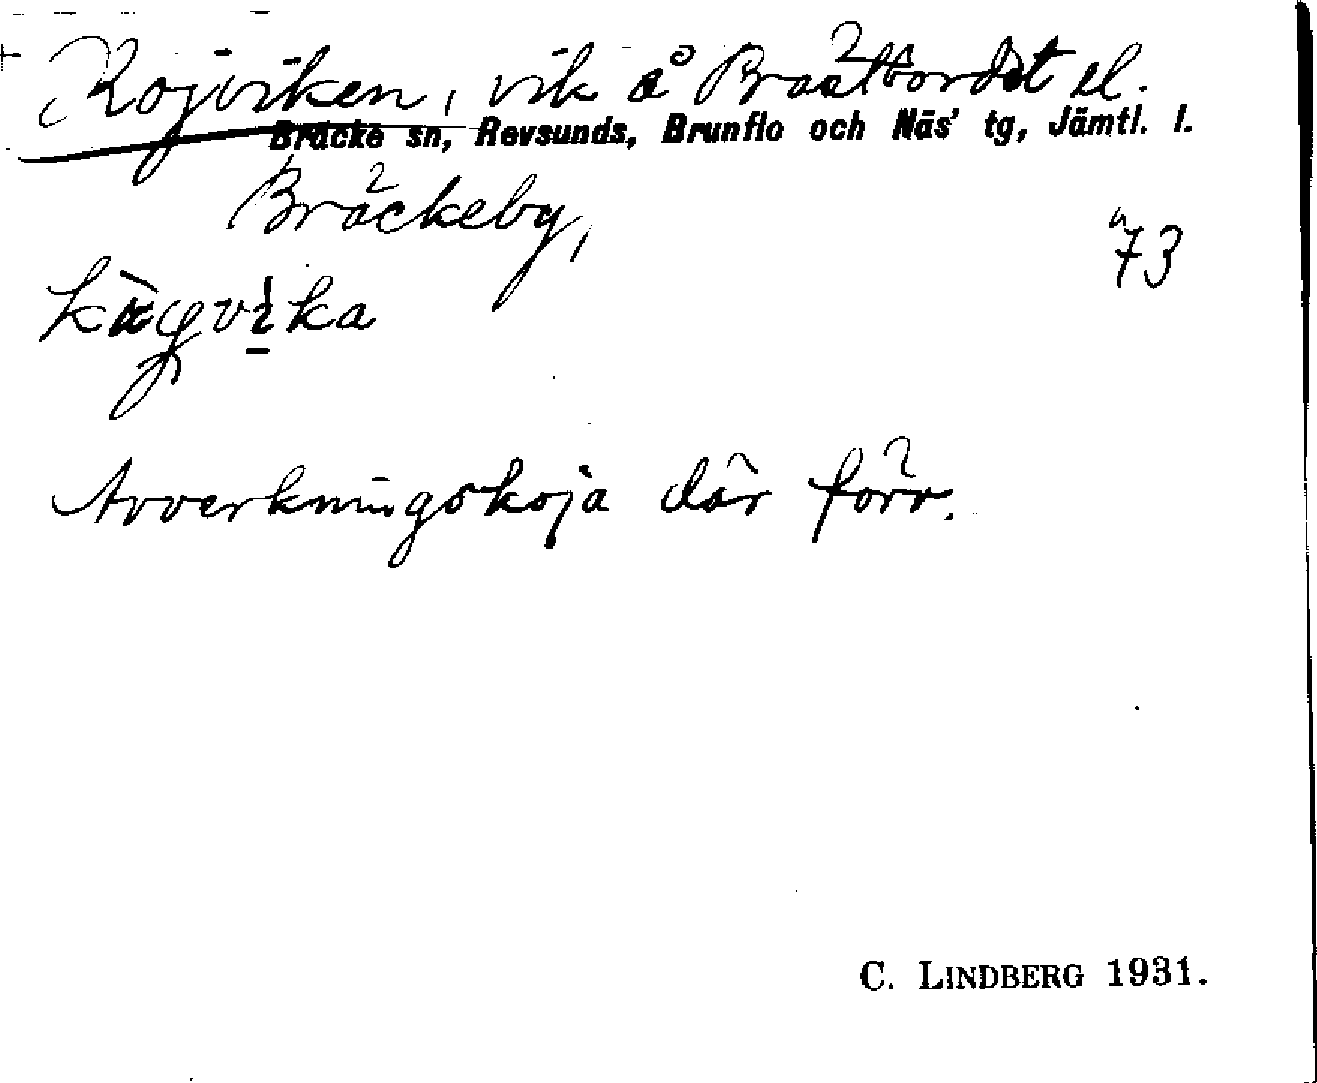 Kojviken, vik å Bräcktbordet el.
Bräcke sn, Revsunds, Brunflo och Näs' tg, Jämtl. l.
Bräckeby,
73
Avverkningskoja där förr.
C. LINDBERG 1931.